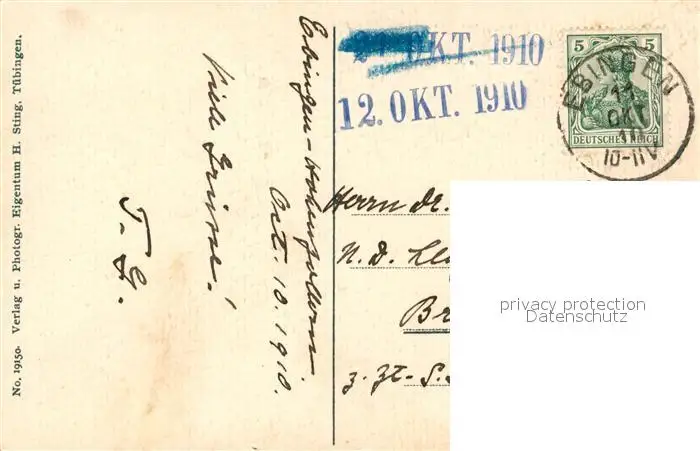 No. 19150. Verlag u. Photogr. Eigentum H. Sting, Tübingen.
Ebingen-Hohenzollern.
Oct. 10. 1910.
Viele Grüsse!
T. G.
21. OKT. 1910
12. OKT. 1910
5 5
DEUTSCHES REICH
EBINGEN
11
OKT
10
10-11V
Herrn Dr.
N. D.
Br
z. Zt. S.
privacy protection
Datenschutz